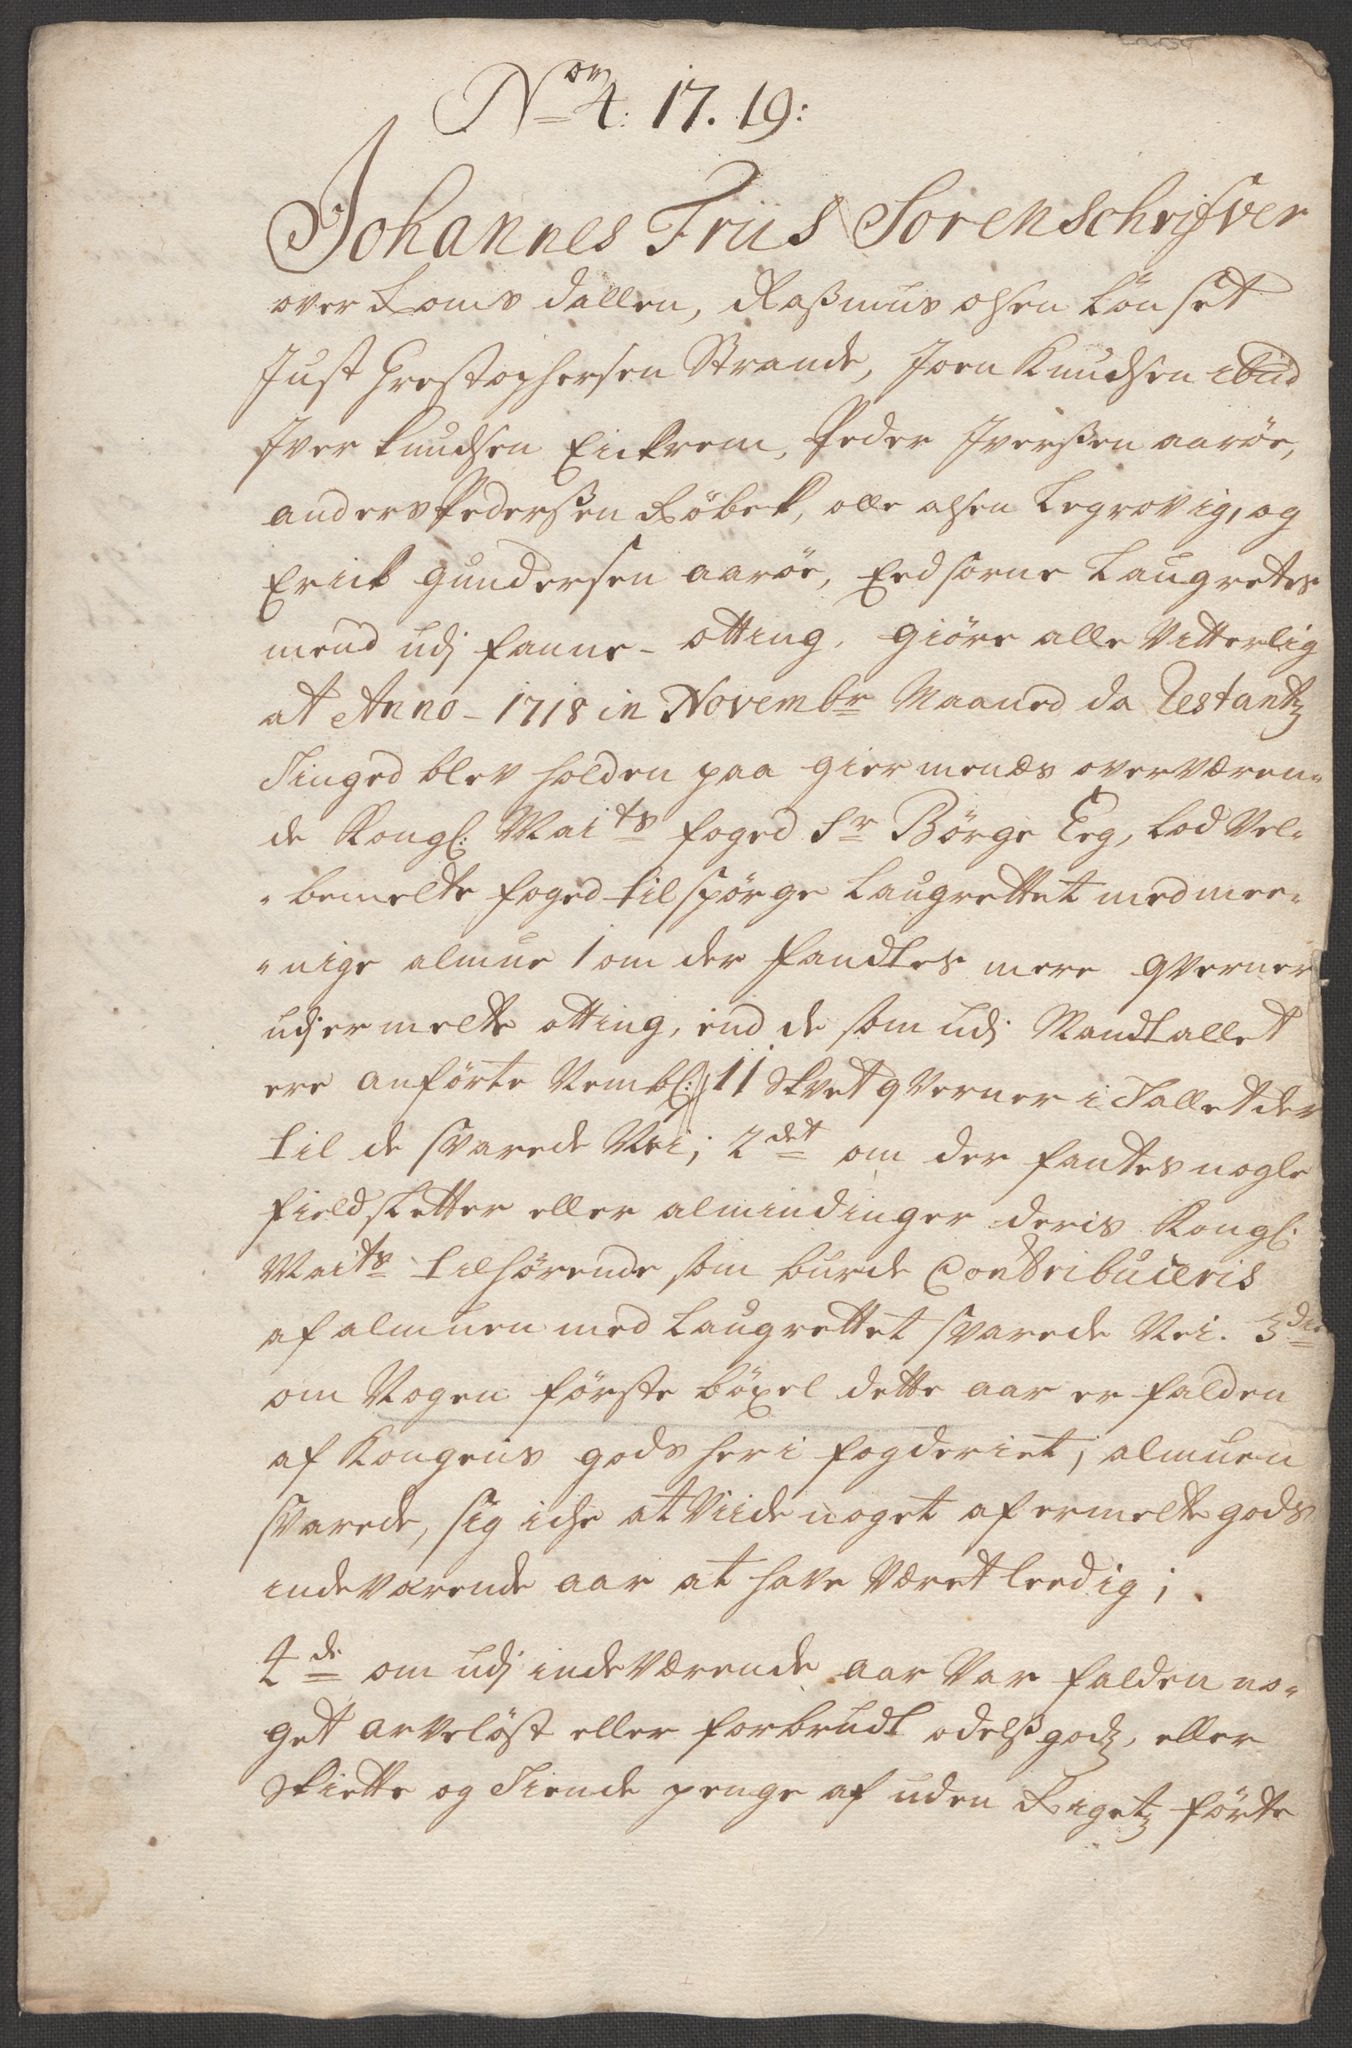 Nom 4: 17. 19:
Johannes Friis Sorenschrifver
over Romsdallen, Rasmus olsen Lönset
Just Christophersen Strande, Joen Knudsen ibid
Iver Knudsen Eickrem, Peder Iverßen aaröe,
anders Pederßen Röbek, olle olsen Legrovig, og
Erick gundersen aaröe, Eedsorne Laugrettes
mend udj fanne-otting, giöre alle Vitterlig
at Anno-1718 in Novembr Maaned da Restantz
Tinged blev holden paa giermenæs overværen-
de Kongl: Maits foged Sr Börge Eeg, lod Vel-
-bemelte foged tilspörge Laugrettet med mee-
-nige almue 1 om der fandtes mere qverner
udj ermelte otting, end de som udj Mandtallet
ere anförte Nembl: 11 skvetqverner i Tallet der
til de svarede Nei; 2det om der fantes nogle
fieldsletter eller almindinger deris Kongl:
Maits tilhörende som burde Contribuceris
af almuen med Laugrettet svarede Nei. 3die
om Nogen förste böxel dette aar er falden
af Kongens gods her i fogderiet; almuen
svarede, sig iche at Viide noget af ermelte gods
indeværende aar at have Været leedig;
4de om udj indeværende aar Var falden no-
get arvelöst eller forbrudt odelsgodz, eller
Skiette og Tiende penge af uden Rigetz förte